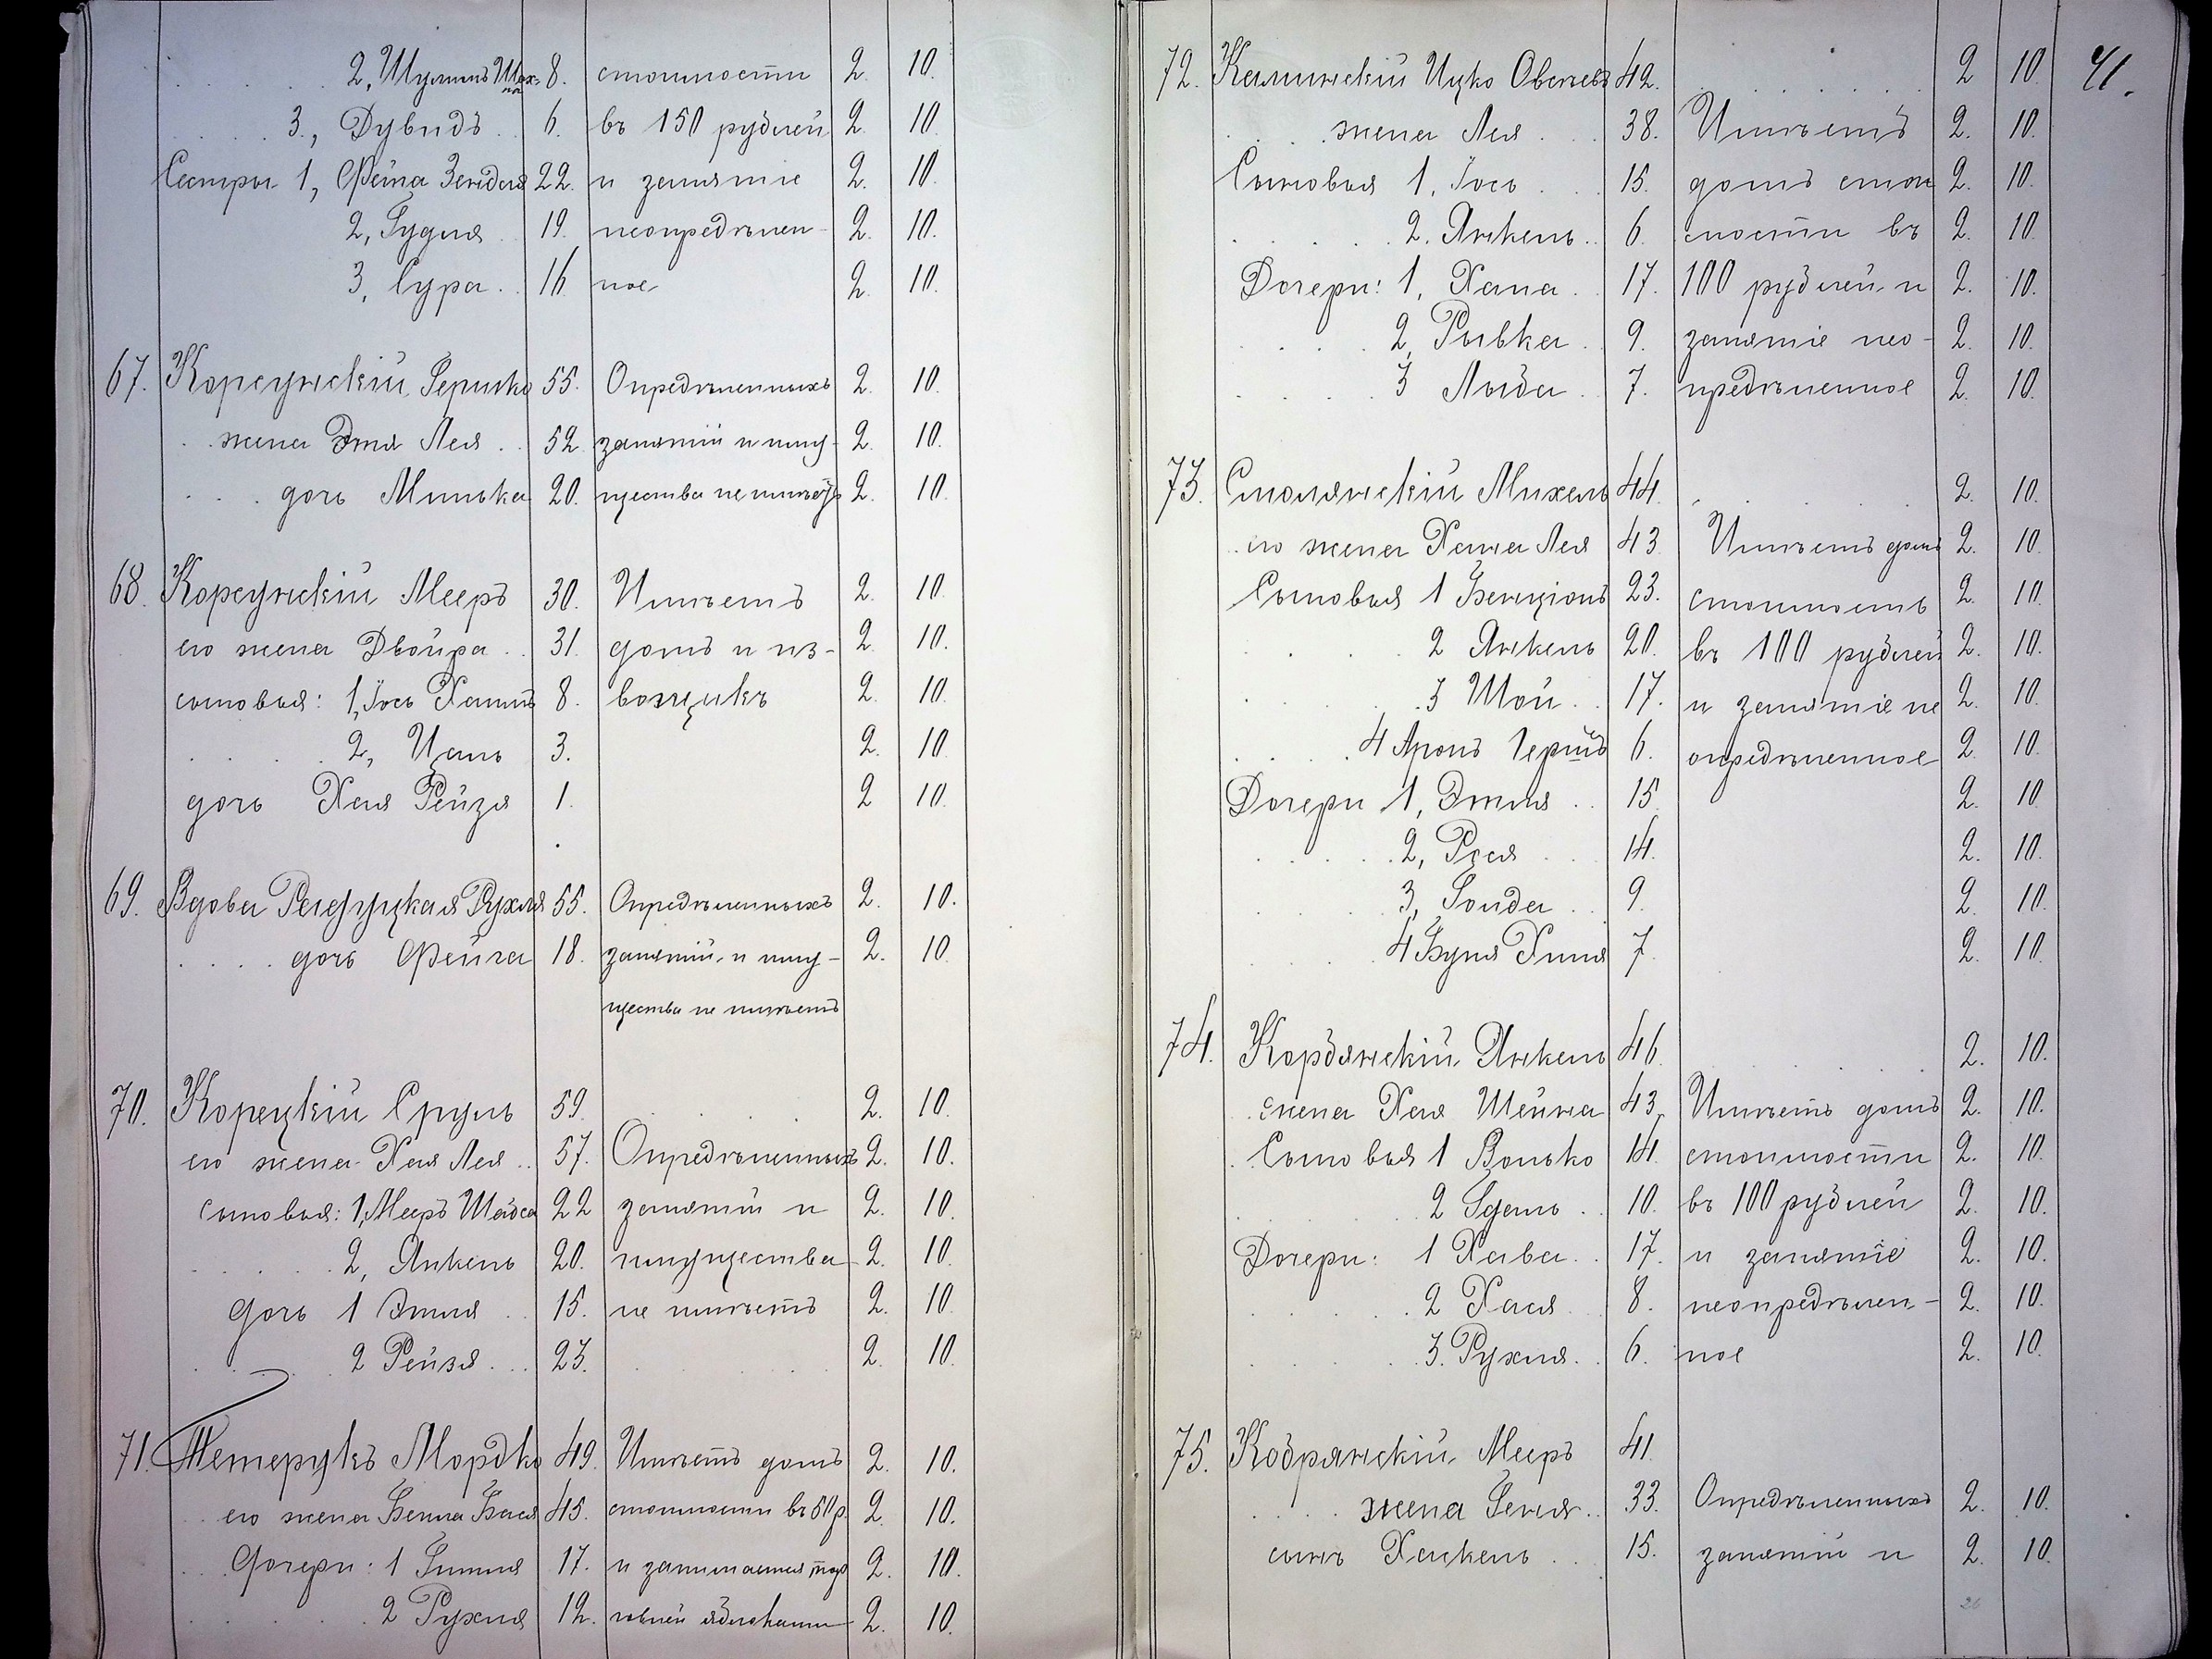 2, Шулимъ 8. стоимости 2. 10.
3., Дувидъ 6. въ 150 рублей 2. 10.
Сестры 1, Фейга Зендля 22. и занятіе 2. 10.
2, Гудля 19. неопредѣлен- 2. 10.
3, Сура 16 ное 2. 10.
67. Корсунскій Гершко 55. Опредѣленныхъ 2. 10.
жена Этя Лея 52 занятій и иму- 2. 10.
дочь Минька 20. щества не имѣетъ 2. 10.
68. Корсунскій Мееръ 30. Имѣетъ 2. 10.
его жена Двойра 31. домъ и из- 2. 10.
сыновья: 1, Іось Хаимъ 8. вощикъ 2. 10.
2, Цаль 3. 2. 10
дочь Хая Рейзя 1. 2 10.
69. Вдова Рухля 55. Опредѣленныхъ 2. 10.
дочь Фейга 18. занятій и иму- 2. 10.
щества не имѣетъ
70. Корецкій Сруль 59. 2. 10.
его жена Хая Лея 57. Опредѣленныхъ 2. 10.
сыновья: 1, Мееръ 22 занятій и 2. 10.
2, Янкель 20. имущества 2. 10.
дочь 1 Этля 15. не имѣетъ 2. 10.
2 Рейзя 23. 2. 10.
71. Тетерукъ Мордко 49. Имѣетъ домъ 2. 10.
его жена Бася 45. стоимости въ 50 р. 2. 10.
дочери: 1 Гитля 17. и занимается тор 2. 10.
2 Рухля 12. говлей яблоками 2. 10.
41.
72. Калинскій Ицко Овсеевъ 42. 2 10.
жена Лея 38. Имѣетъ 2. 10.
Сыновья 1, Іось 15. домъ стои 2. 10.
2. Янкель 6. мости въ 2. 10.
Дочери: 1, Хана 17. 100 рублей и 2. 10.
2, Рывка 9. занятіе нео- 2. 10.
3 Лыба 7. предѣленное 2. 10.
73. Смолянскій Михель 44. 2. 10.
его жена Хана Лея 43 Имѣетъ домъ 2. 10.
Сыновья 1 Бенціонъ 23. стоимость 2. 10.
2 Янкель 20. въ 100 рублей 2. 10.
3 Шая 17. и занятіе не 2. 10.
4 Аронъ Гершъ 6. опредѣленное 2. 10.
Дочери 1, Этля 15 2. 10
2, Рася 14. 2. 10.
3, Голда 9. 2. 10.
4 Буня 7. 2. 10.
74. Корбянскій Янкель 46. 2. 10.
жена Хая Шейна 43. Имѣетъ домъ 2. 10.
Сыновья 1 Волько 14. стоимости 2. 10.
2 Гдаль 10. въ 100 рублей 2. 10.
Дочери: 1 Хава 17. и занятіе 2. 10.
2 Хася 8. неопредѣлен- 2. 10.
3. Рухля 6. ное 2. 10.
75. Кобрянскій Мееръ 41.
жена Геня 33. Опредѣленныхъ 2. 10.
сынъ Хаскель 15. занятій и 2. 10.